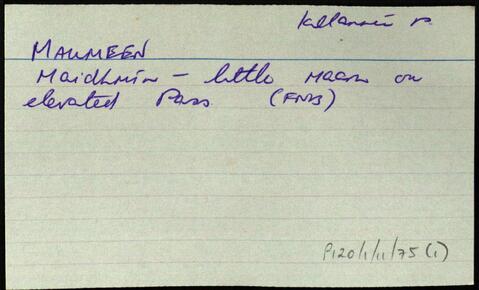 Killannin P.
MAUMEEN
Maidhmín - little maam or
elevated Pass (FNB)
P120/1/11/75(1)